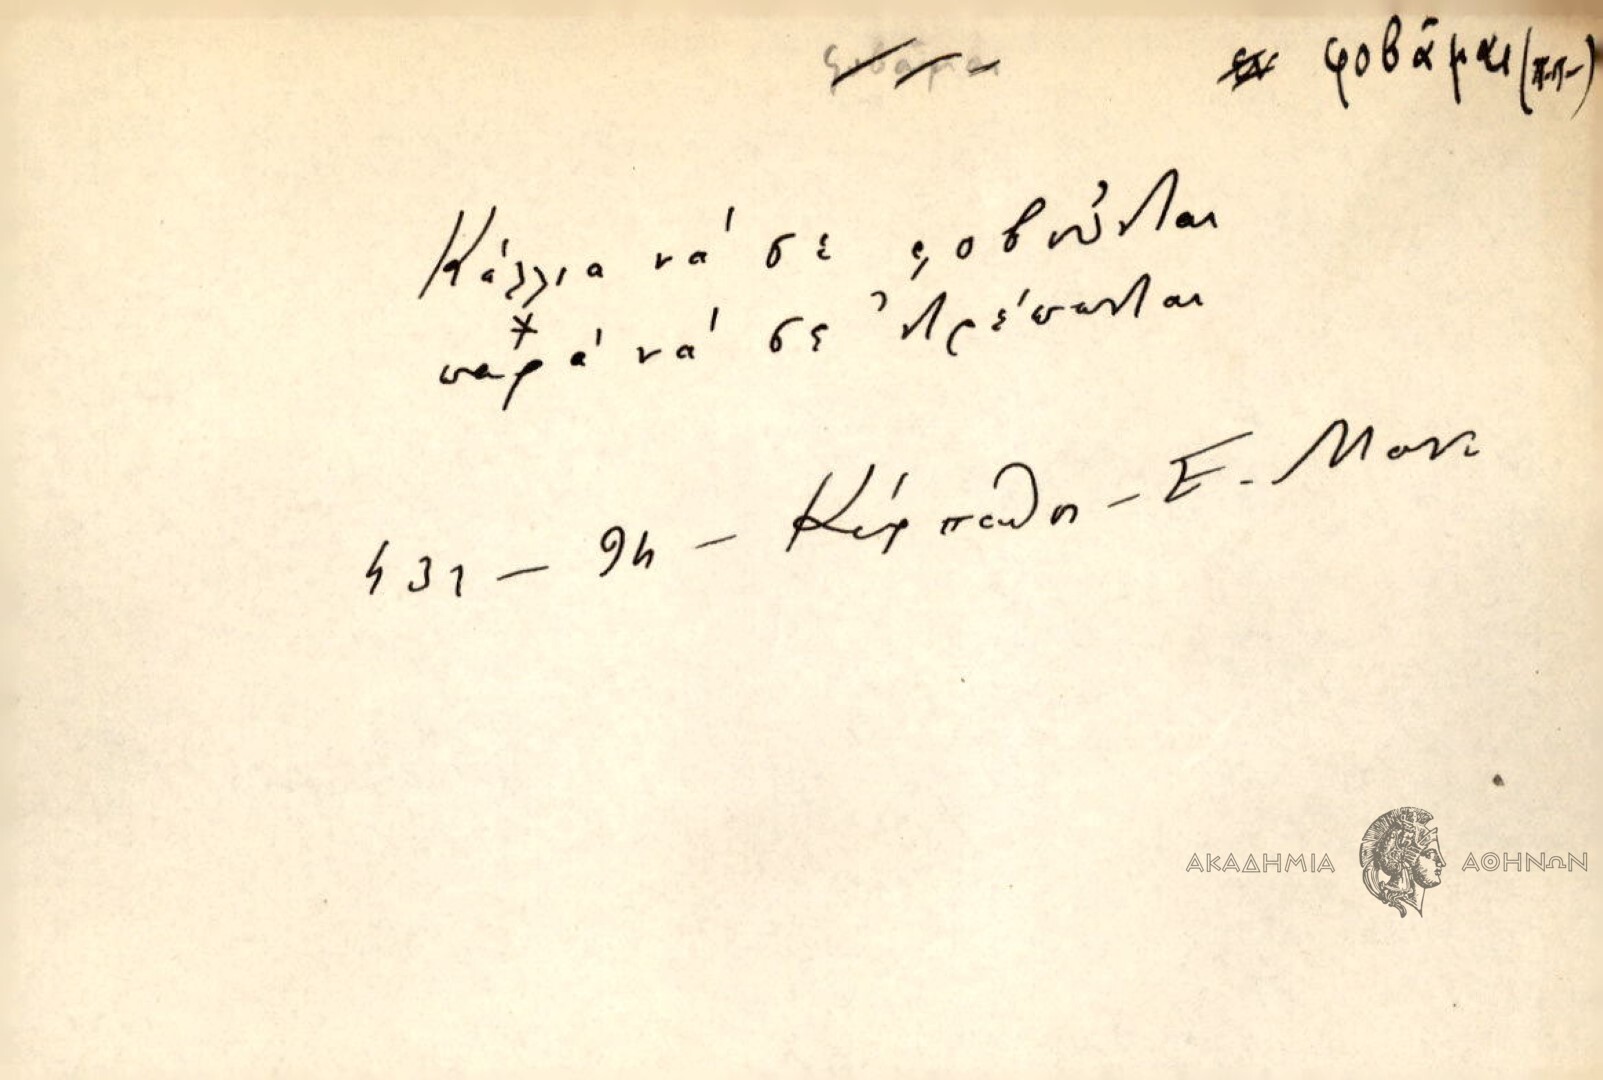 φοβᾶμαι (π.π.)
Κάλλια νά σε φοβοῦνται
παρά νά σε ντρέπωνται
431 — 94 — Κάρπαθος — Ε. Μαν.
ΑΚΑΔΗΜΙΑ ΑΘΗΝΩΝ